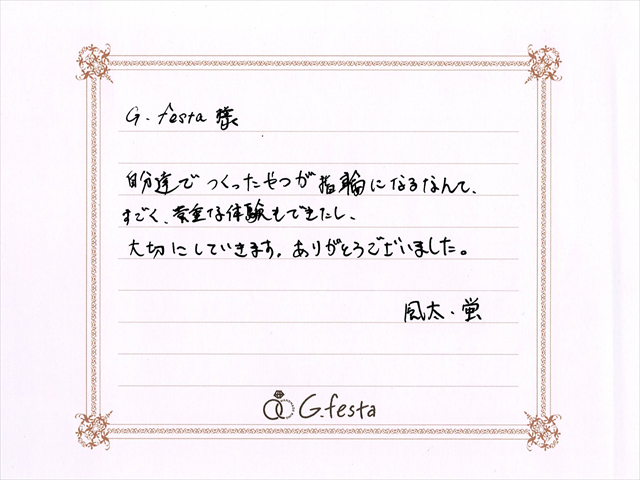 G.festa 様
自分達でつくったやつが指輪になるなんて、
すごく、貴重な体験もできたし、
大切にしていきます。ありがとうございました。
風太・蛍
G.festa